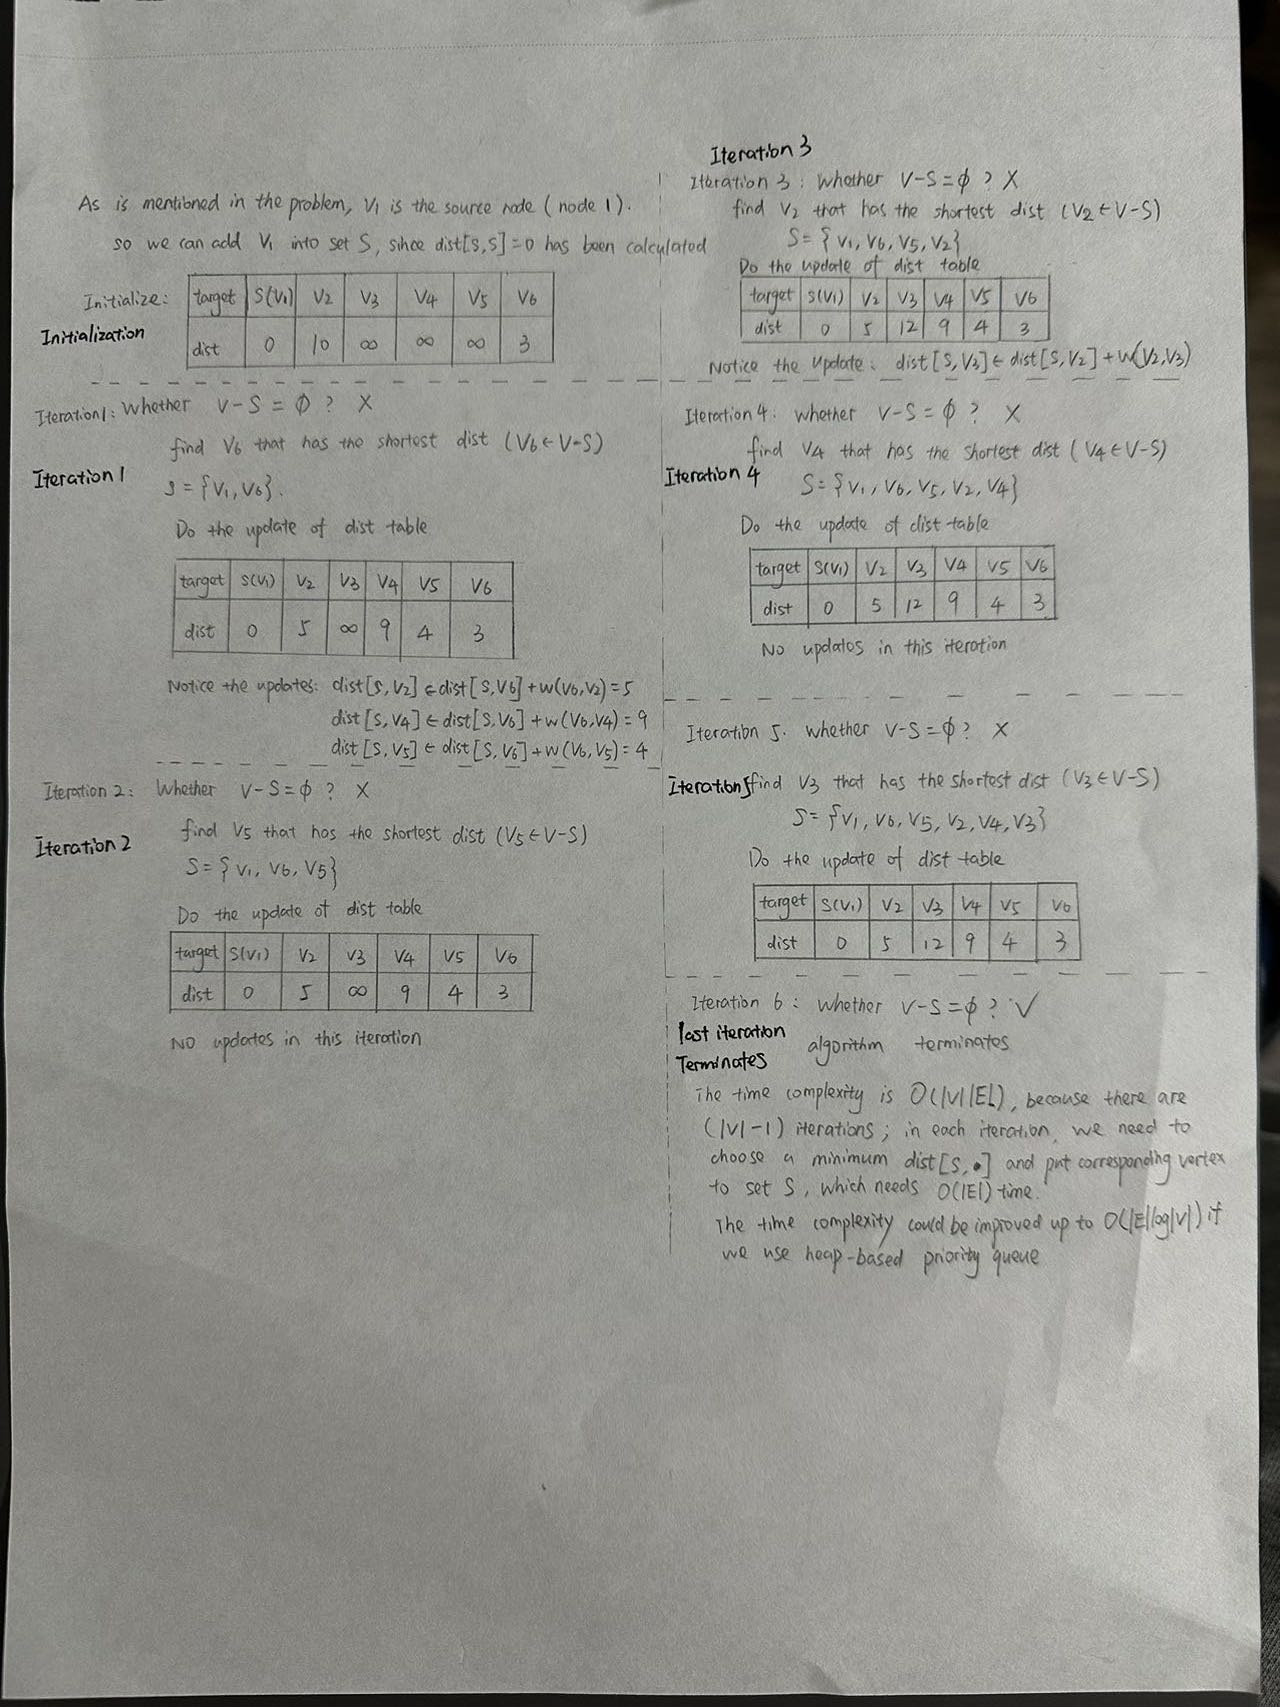 As is mentioned in the problem, V1 is the source node (node 1).
so we can add V1 into set S, since dist[S,S]=0 has been calculated
Initialize:
Initialization
target S(V1) V2 V3 V4 V5 V6
dist 0 10 ∞ ∞ ∞ 3
Iteration1: Whether V-S = ϕ ? X
find V6 that has the shortest dist (V6 ∈ V-S)
Iteration 1
S = {V1, V6}.
Do the update of dist table
target S(V1) V2 V3 V4 V5 V6
dist 0 5 ∞ 9 4 3
Notice the updates: dist[S,V2] ← dist[S,V6]+w(V6,V2)=5
dist[S,V4] ← dist[S,V6]+w(V6,V4)=9
dist[S,V5] ← dist[S,V6]+w(V6,V5)=4
Iteration 2: Whether V-S=ϕ ? X
find V5 that has the shortest dist (V5 ∈ V-S)
Iteration 2
S={V1, V6, V5}
Do the update of dist table
target S(V1) V2 V3 V4 V5 V6
dist 0 5 ∞ 9 4 3
NO updates in this iteration
Iteration 3
Iteration 3: Whether V-S=ϕ ? X
find V2 that has the shortest dist (V2 ∈ V-S)
S={V1, V6, V5, V2}
Do the update of dist table
target S(V1) V2 V3 V4 V5 V6
dist 0 5 12 9 4 3
Notice the update: dist[S,V3] ← dist[S,V2]+w(V2,V3)
Iteration 4: whether V-S=ϕ ? X
find V4 that has the shortest dist (V4 ∈ V-S)
Iteration 4
S={V1, V6, V5, V2, V4}
Do the update of dist table
target S(V1) V2 V3 V4 V5 V6
dist 0 5 12 9 4 3
No updates in this iteration
Iteration 5. whether V-S=ϕ ? X
Iteration5
find V3 that has the shortest dist (V3 ∈ V-S)
S={V1, V6, V5, V2, V4, V3}
Do the update of dist table
target S(V1) V2 V3 V4 V5 V6
dist 0 5 12 9 4 3
Iteration 6: whether V-S=ϕ ? √
last iteration
Terminates
algorithm terminates
The time complexity is O(|V||E|), because there are
(|V|-1) iterations; in each iteration, we need to
choose a minimum dist[S,•] and put corresponding vertex
to set S, which needs O(|E|) time.
The time complexity could be improved up to O(|E|log|V|) if
we use heap-based priority queue